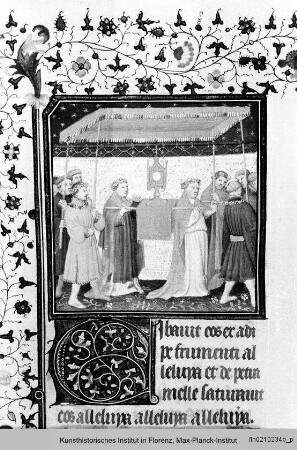 Cibauit eos ex adi
pe frumenti al
leluya et de petra
melle saturauit
eos alleluya alleluya alleluya.
Kunsthistorisches Institut in Florenz, Max-Planck-Institut
fln0210234b_p